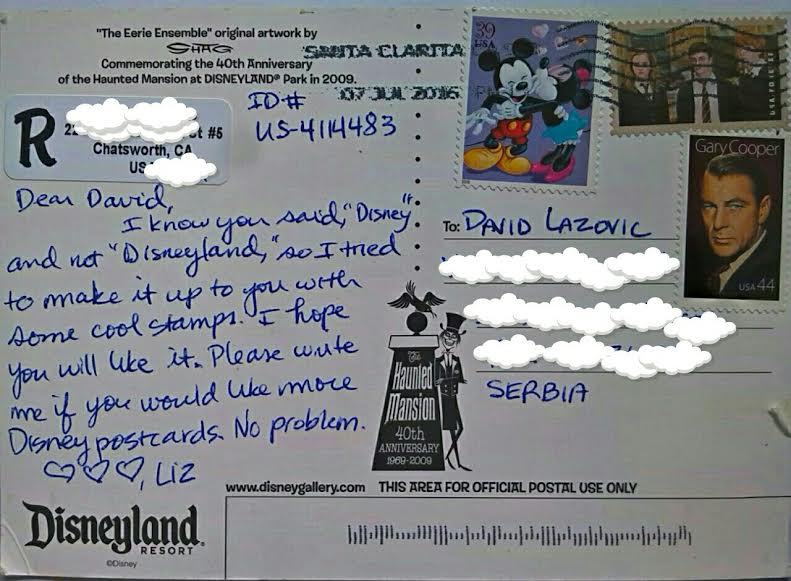 "The Eerie Ensemble" original artwork by
SHAG
Commemorating the 40th Anniversary
of the Haunted Mansion at DISNEYLAND® Park in 2009.
SANTA CLARITA
07 JUL 2016
39
USA
Gary Cooper
USA 44
R
#5
Chatsworth, CA
US
ID#
US-4114483
Dear David,
I know you said, "Disney"
and not "Disneyland," so I tried
to make it up to you with
some cool stamps. I hope
you will like it. Please write
me if you would like more
Disney postcards. No problem.
♡♡♡, Liz
To: DAVID LAZOVIC
SERBIA
The
Haunted
Mansion
40th
ANNIVERSARY
1969-2009
www.disneygallery.com THIS AREA FOR OFFICIAL POSTAL USE ONLY
Disneyland®
RESORT
©Disney